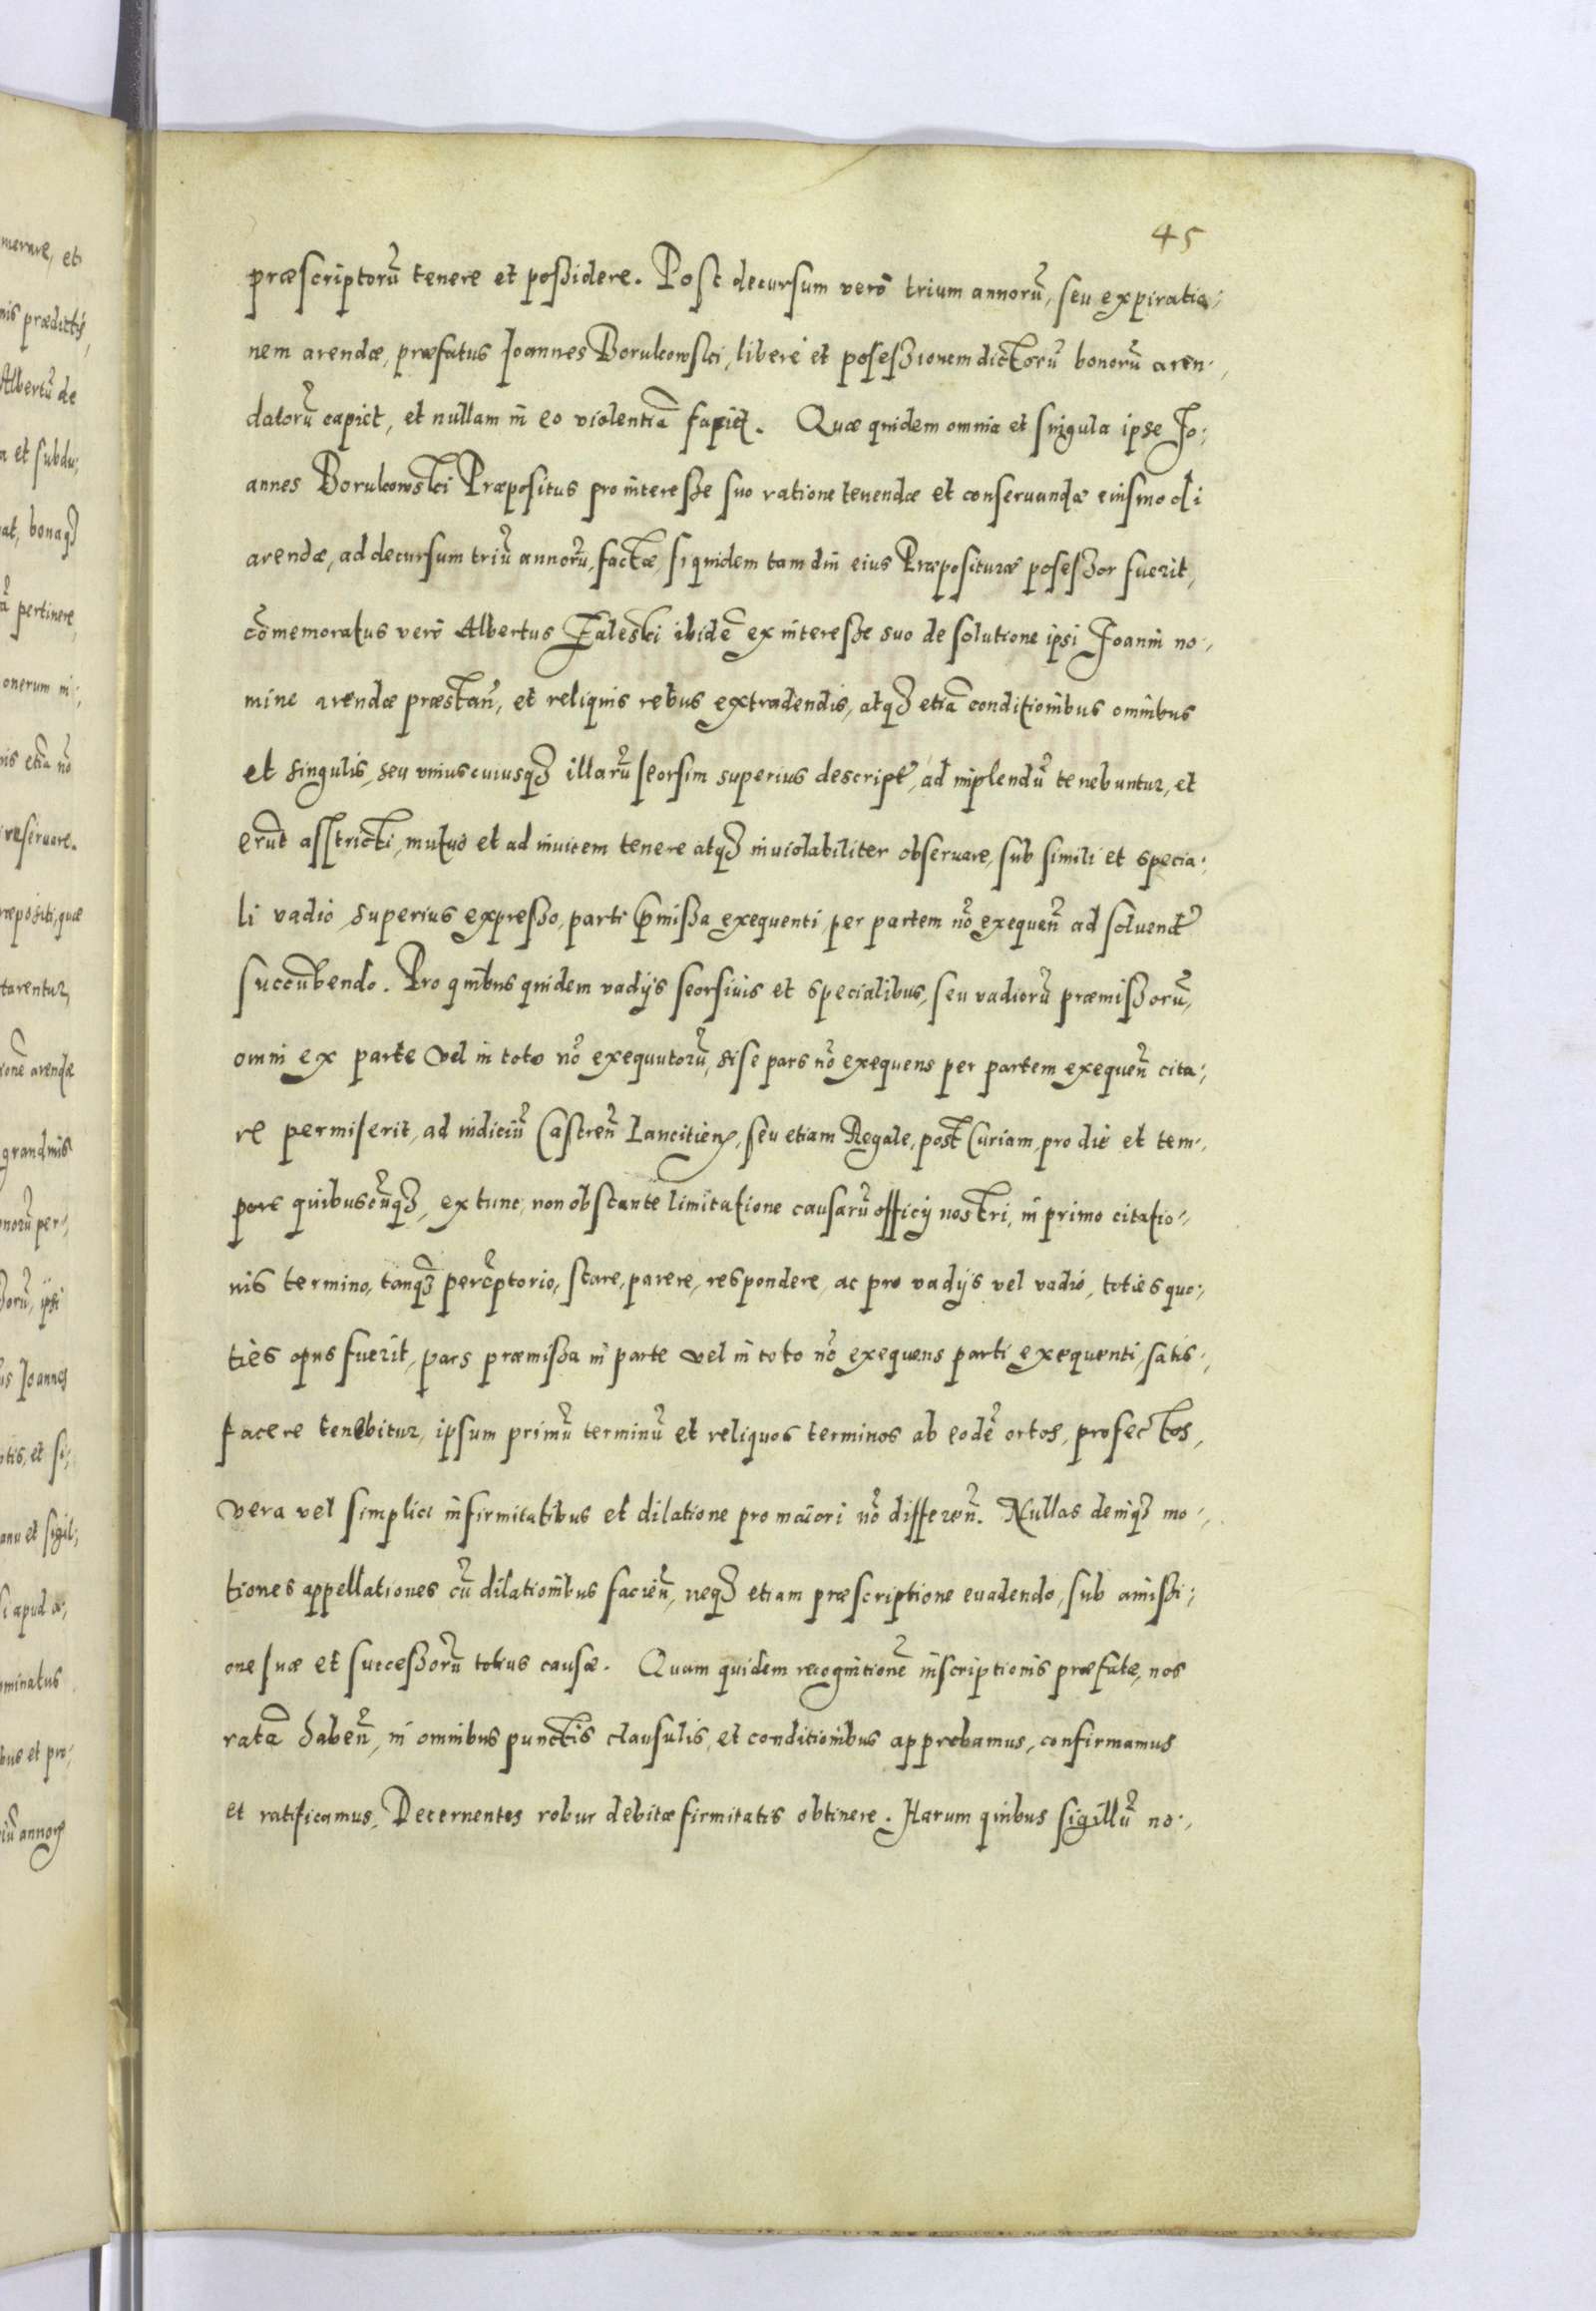 45
præscriptorũ tenere et poßidere. Post decursum verò trium annorũ, seu expiratio-
nem arendæ, præfatus Joannes Borukowski, liberè et poseßionem dictorũ bonorũ aren-
datorũ capiet, et nullam in eo violentiã faciet. Quæ quidem omnia et singula ipse Jo-
annes Borukowski Præpositus pro intereße suo ratione tenendæ et conseruandæ eiusmodi
arendæ, ad decursum triũ annorũ, factæ, siquidem tam diu eius Præposituræ poseßor fuerit,
cõmemoratus verò Albertus Zaleski ibidẽ ex intereße suo de solutione ipsi Joanni no-
mine arendæ præstan̄, et reliquis rebus extradendis, atqꝫ etiã conditionibus omnibus
et singulis, seu vniuscuiusqꝫ illarũ seorsim superius descript̃, ad implendũ tenebuntur, et
erũt asstricti, mutuò et ad inuicem tenere atqꝫ inuiolabiliter obseruare, sub simili et specia-
li vadio superius expreßo, parti p̃mißa exequenti, per partem nõ exequeñ ad soluend̃
succũbendo. Pro quibus quidem vadijs seorsiuis et specialibus, seu vadiorũ præmißorũ,
omni ex parte vel in toto nõ exequutorũ, si se pars nõ exequens per partem exequeñ cita-
re permiserit, ad iudiciũ Castreñ Lancicieñ, seu etiam Regale, post Curiam, pro die et tem-
pore quibuscũqꝫ, ex tunc, non obstante limitatione causarũ officij nostri, in primo citatio-
nis termino, tanqꝫ perẽptorio, stare, parere, respondere, ac pro vadijs vel vadio, toties quo-
ties opus fuerit, pars præmißa in parte vel in toto nõ exequens parti exequenti, satis-
facere tenebitur, ipsum primũ terminũ et reliquos terminos ab eodẽ ortos, profectos,
vera vel simplici infirmitatibus et dilatione pro maiori nõ differeñ. Nullas deniqꝫ mo-
tiones appellationes cũ dilationibus facieñ, neqꝫ etiam præscriptione euadendo, sub amißi-
one suæ et succeßorũ totius causæ. Quam quidem recognitionẽ inscriptionis præfatæ, nos
ratã habeñ, in omnibus punctis clausulis, et conditionibus approbamus, confirmamus
et ratificamus, Decernentes robur debitæ firmitatis obtinere. Harum quibus sigillũ no-